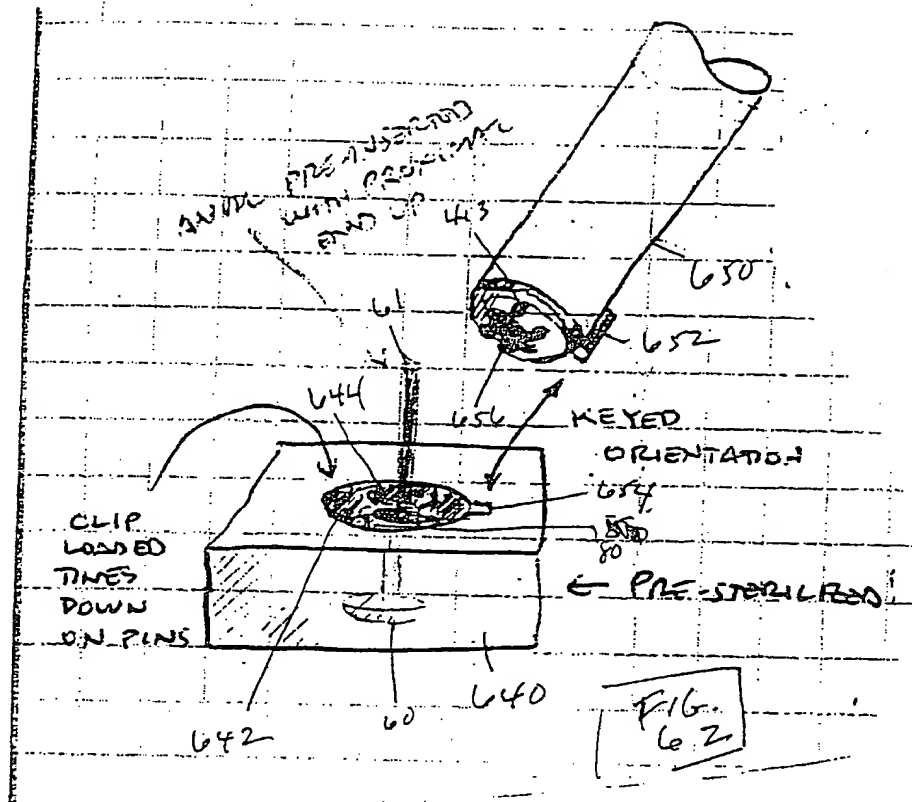 ANVIL PRE-INSERTED
WITH PROXIMAL
END UP
413
650
61
652
644
656
KEYED
ORIENTATION
654
80
CLIP
LOADED
TINES
DOWN
ON PINS
← PRE-STERILIZED
642
60
640
FIG.
62